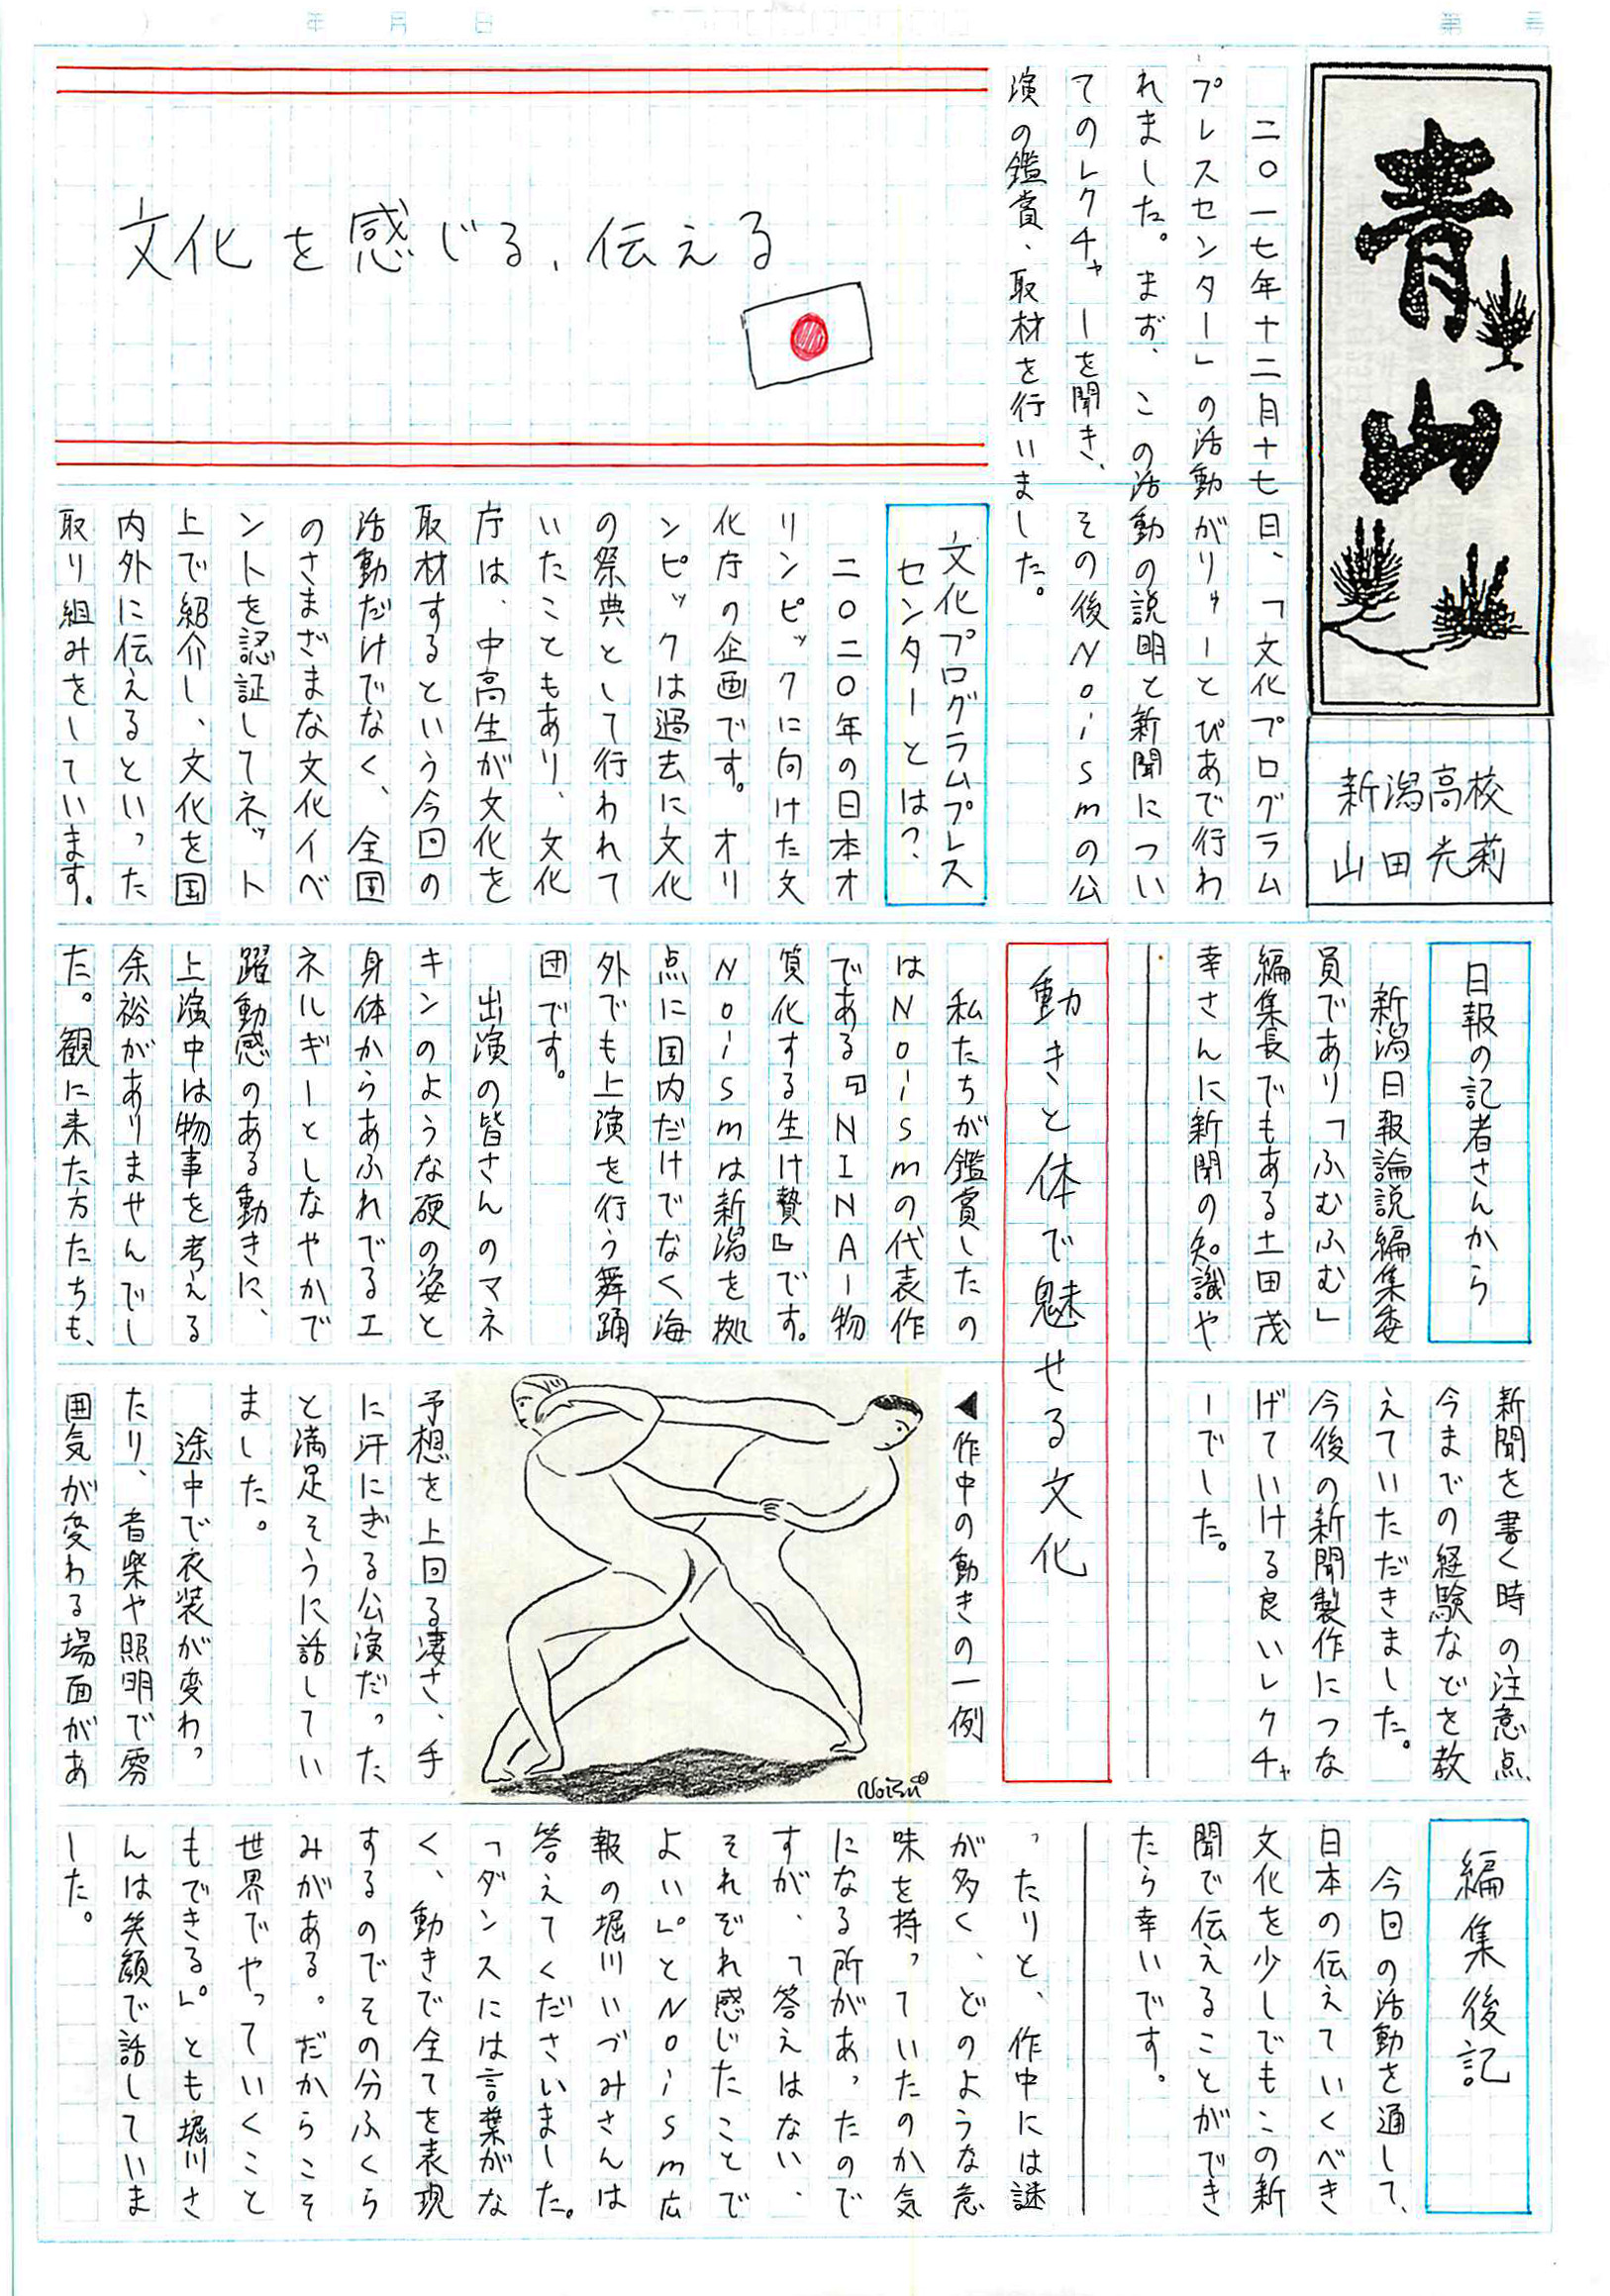 年 月 日
第 号
青山
新潟高校
山田光莉
二〇一七年十二月十七日、「文化プログラム
プレスセンター」の活動がりゅーとぴあで行わ
れました。まず、この活動の説明と新聞につい
てのレクチャーを聞き、その後Noismの公
演の鑑賞、取材を行いました。
文化を感じる、伝える
文化プログラムプレス
センターとは?
二〇二〇年の日本オ
リンピックに向けた文
化庁の企画です。オリ
ンピックは過去に文化
の祭典として行われて
いたこともあり、文化
庁は、中高生が文化を
取材するという今回の
活動だけでなく、全国
のさまざまな文化イベ
ントを認証してネット
上で紹介し、文化を国
内外に伝えるといった
取り組みをしています。
日報の記者さんから
新潟日報論説編集委
員であり「ふむふむ」
編集長でもある土田茂
幸さんに新聞の知識や
新聞を書く時の注意点、
今までの経験などを教
えていただきました。
今後の新聞製作につな
げていける良いレクチャ
ーでした。
動きと体で魅せる文化
私たちが鑑賞したの
はNoismの代表作
である『NINA―物
質化する生け贄』です。
Noismは新潟を拠
点に国内だけでなく海
外でも上演を行う舞踊
団です。
出演の皆さんのマネ
キンのような硬の姿と
身体からあふれでるエ
ネルギーとしなやかで
躍動感のある動きに、
上演中は物事を考える
余裕がありませんでし
た。観に来た方たちも、
◀作中の動きの一例
Noizu
予想を上回る凄さ、手
に汗にぎる公演だった
と満足そうに話してい
ました。
途中で衣装が変わっ
たり、音楽や照明で雰
囲気が変わる場面があ
ったりと、作中には謎
が多く、どのような意
味を持っていたのか気
になる所があったので
すが、「答えはない、
それぞれ感じたことで
よい。」とNoism広
報の堀川いづみさんは
答えてくださいました。
「ダンスには言葉がな
く、動きで全てを表現
するのでその分ふくら
みがある。だからこそ
世界でやっていくこと
もできる。」とも堀川さ
んは笑顔で話していま
した。
編集後記
今回の活動を通して、
日本の伝えていくべき
文化を少しでもこの新
聞で伝えることができ
たら幸いです。